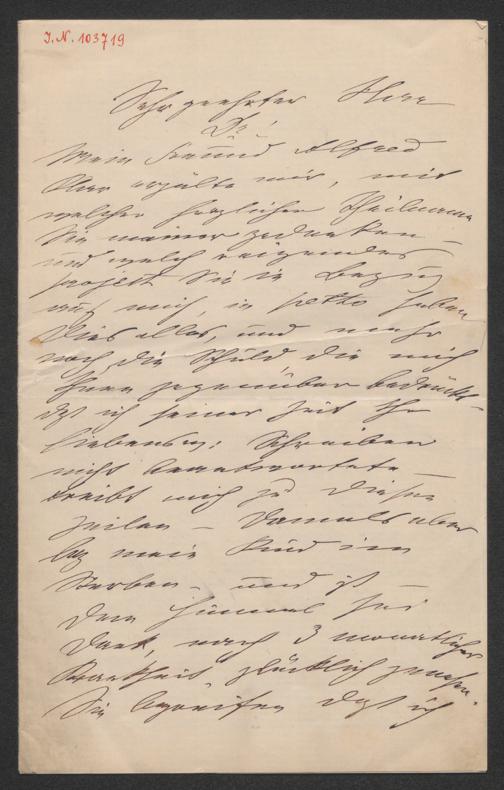 I.N. 103719
Sehr geehrter Herr
Dr!
Mein Freund Alfred
erzählte mir, mit
welcher herzlichen Theilnahme
Sie meiner gedenken –
und welch reizendes
Project Sie in Bezug
auf mich, in petto haben
Dies alles, und mehr
noch die Schuld, die mich
Ihnen gegenüber bedrückt –
daß ich seiner Zeit Ihr
liebensw: Schreiben
nicht beantwortete –
treibt mich zu diesen
Zeilen – Damals aber
lag mein Kind im
Sterben – und ist –
dem Himmel sei
Dank, nach 3 monatlicher
Krankheit glücklich genesen.
Sie begreifen daß ich